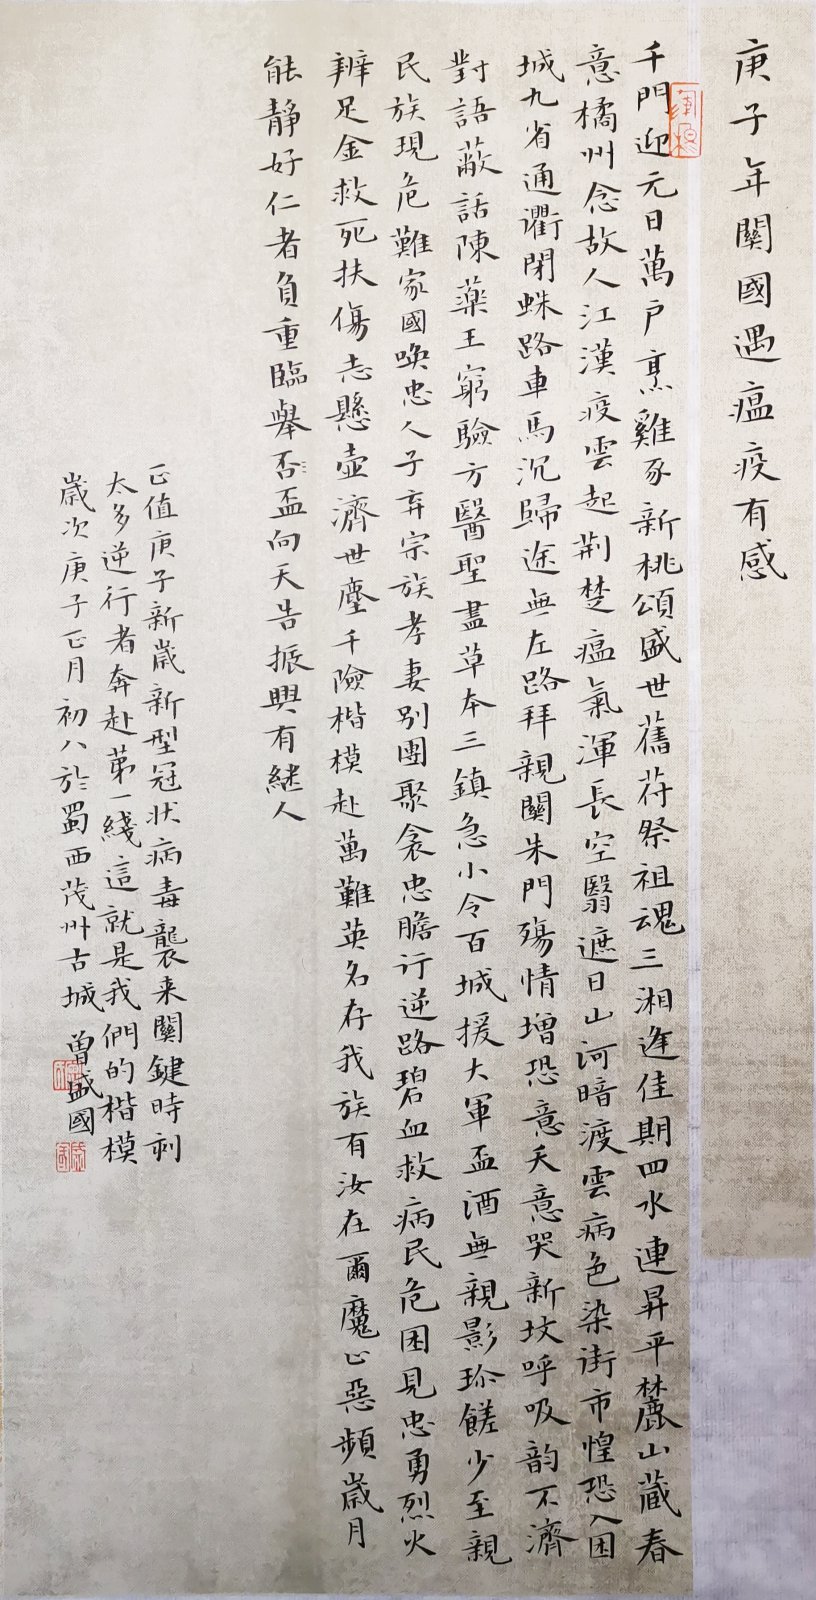 庚子年關國遇瘟疫有感
千門迎元日萬戶烹雞豕新桃頌盛世舊符祭祖魂三湘逢佳期四水連昇平麓山藏春
意橘州念故人江漢疫雲起荊楚瘟氣渾長空翳遮日山河暗渡雲病色染街市惶恐入困
城九省通衢閉蛛路車馬沉歸途無左路拜親關朱門殤情增恐意天意哭新坟呼吸韵不濟
對語蔽話陳藥王窮驗方醫聖盡草本三鎮急小令百城援大軍盃酒無親影珎饈少至親
民族現危難家國喚忠人子弃宗族孝妻別團聚衾忠膽行逆路碧血救病民危困見忠勇烈火
辨足金救死扶傷志懸壺濟世塵千險楷模赴萬難英名存我族有汝在爾魔止惡頻歲月
能靜好仁者負重臨舉否盃向天告振興有繼人
正值庚子新歲新型冠狀病毒襲来關鍵時刻
太多逆行者奔赴第一綫這就是我們的楷模
歲次庚子正月初八於蜀西茂州古城 曾盛國